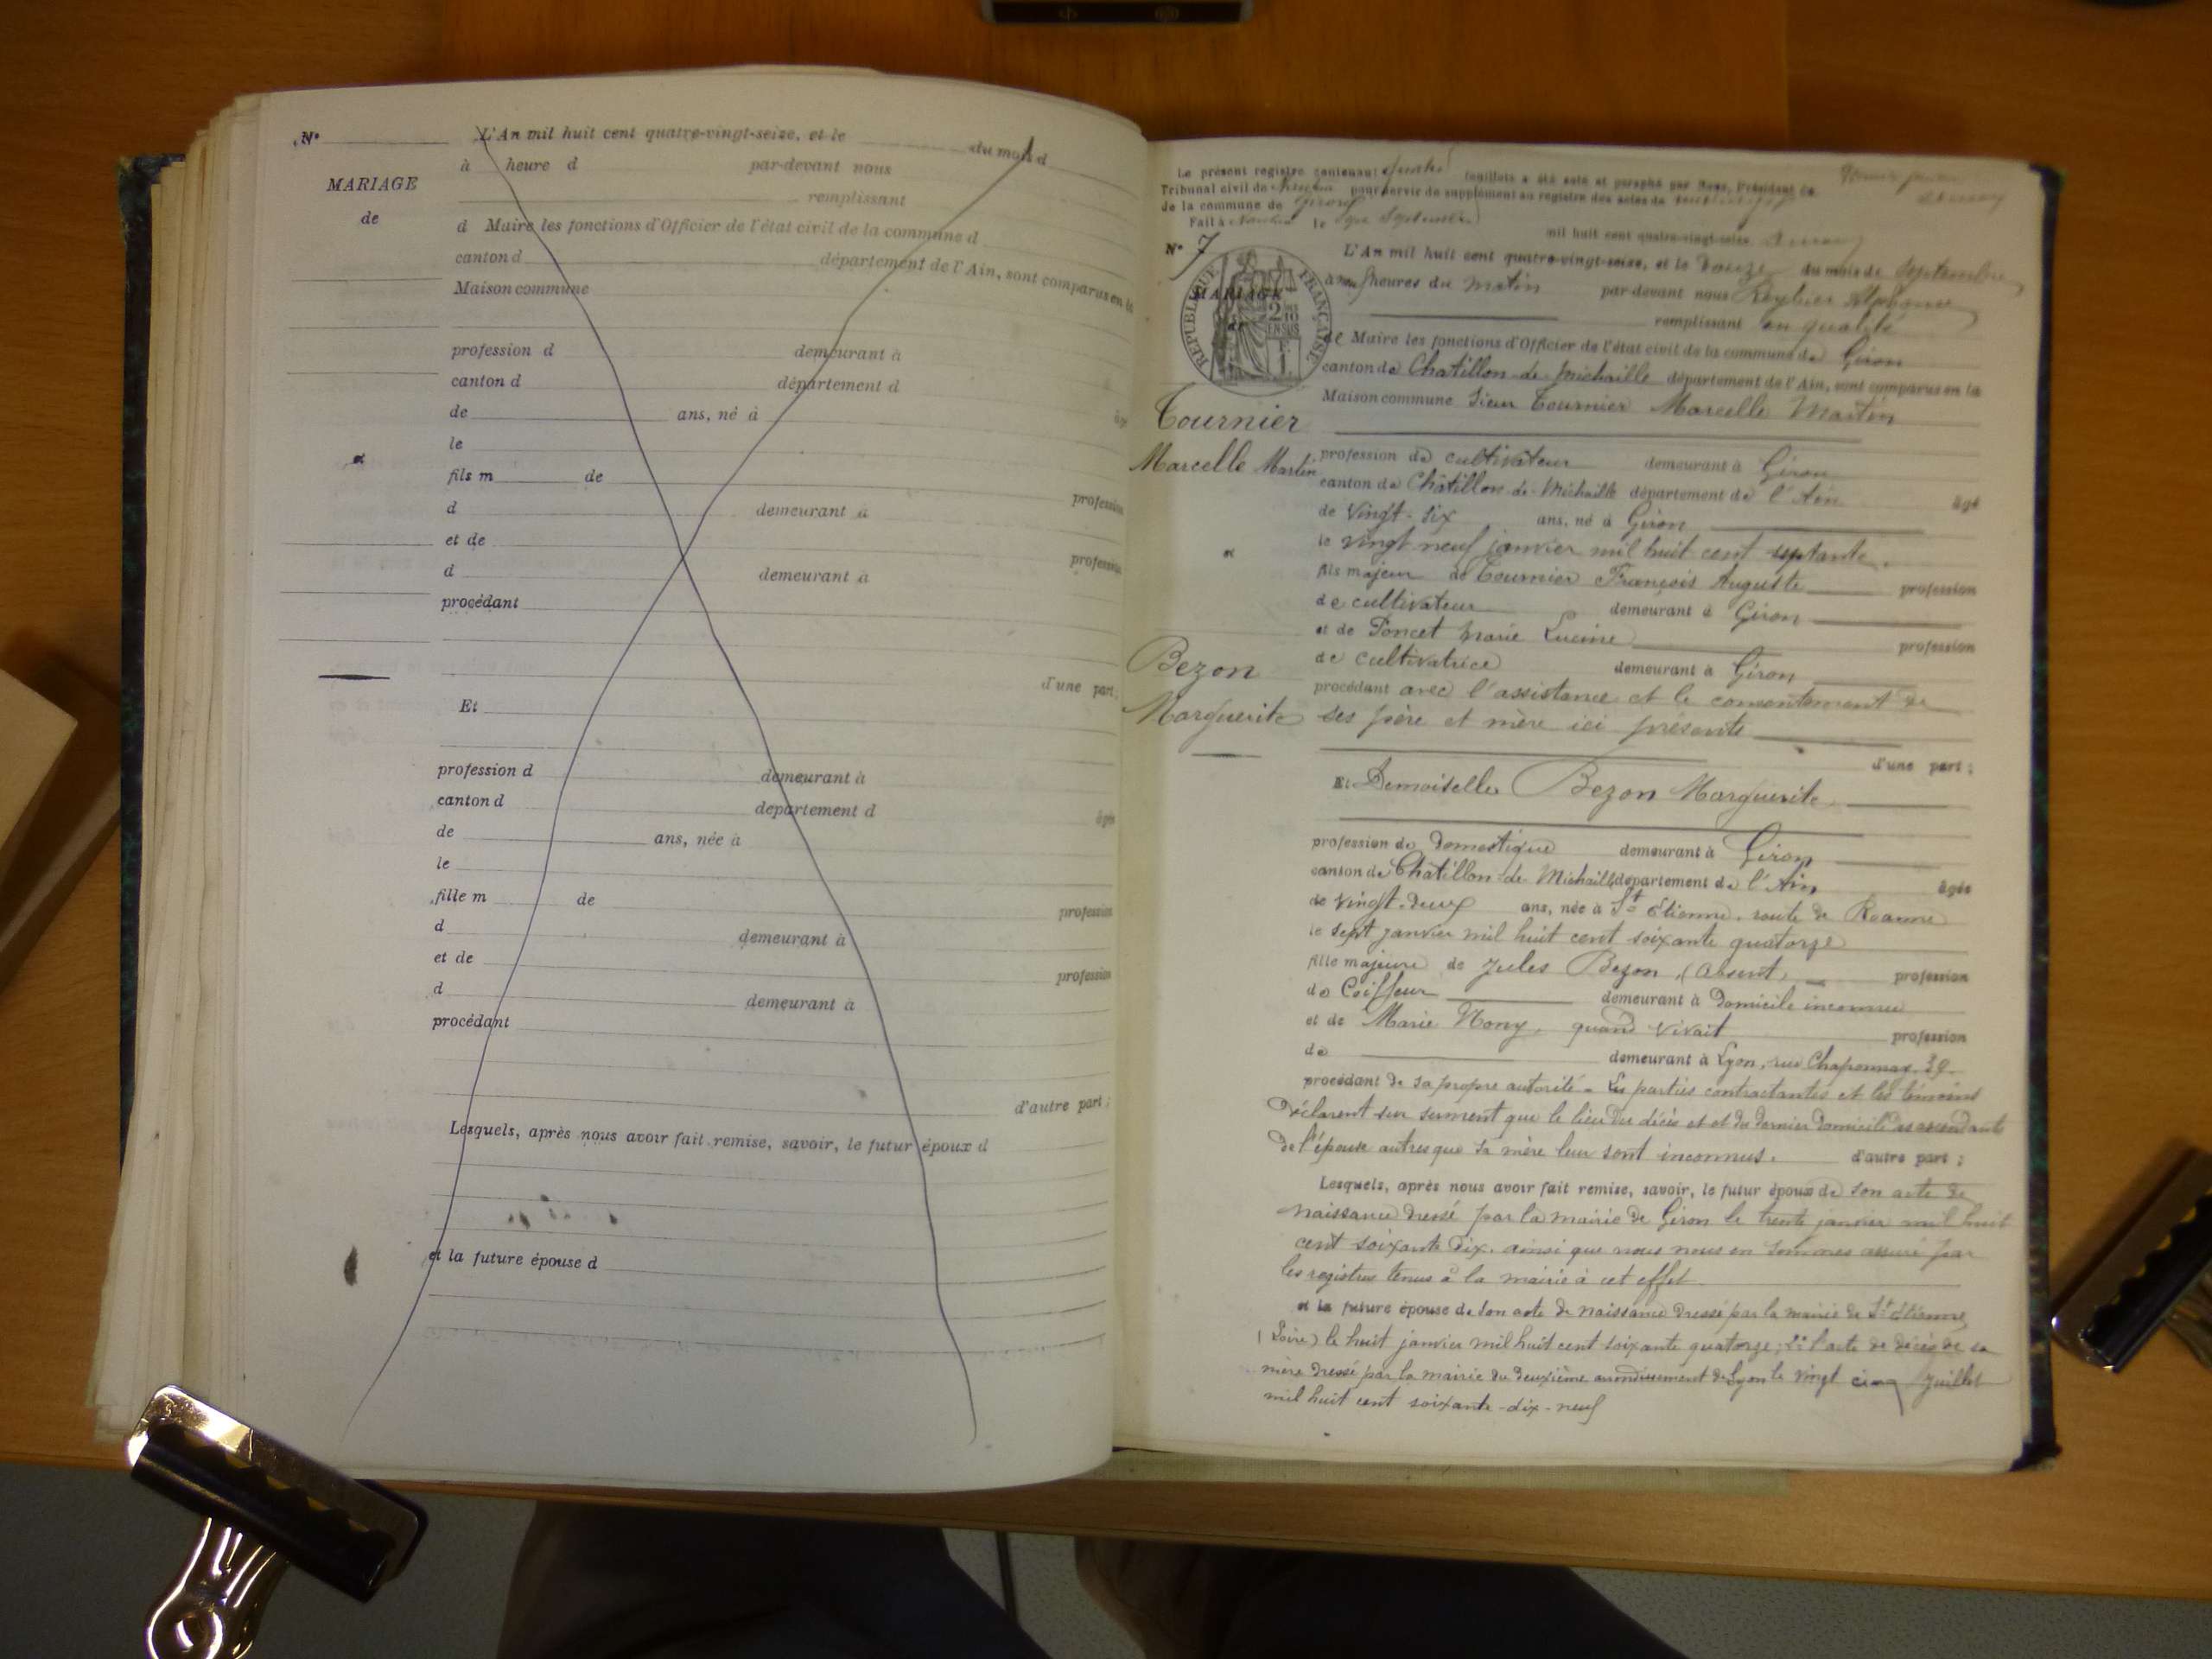 N°
L'An mil huit cent quatre-vingt-seize, et le du mois d
MARIAGE
de
et
à heure d par-devant nous
remplissant
d Maire les fonctions d'Officier de l'état civil de la commune d
canton d département de l'Ain, sont comparus en la
Maison commune
profession d demeurant à
canton d département d âgé
de ans, né à
le
fils m de profession
d demeurant à
et de profession
d demeurant à
procédant
d'une part;
Et
profession d demeurant à
canton d département d âgée
de ans, née à
le
fille m de profession
d demeurant à
et de profession
d demeurant à
procédant
d'autre part;
Lesquels, après nous avoir fait remise, savoir, le futur époux d
et la future épouse d
Le présent registre contenant feuillets a été coté et paraphé par Nous, Président du
Tribunal civil de pour servir de supplément au registre des actes de
de la commune de Giron
Fait à le Septembre mil huit cent quatre-vingt-seize
N° 7
MARIAGE
de
RÉPUBLIQUE FRANÇAISE
Tournier
Marcelle Martin
et
Bezon
Marguerite
L'An mil huit cent quatre-vingt-seize, et le douze du mois de Septembre
à heures du matin par-devant nous Alphonse
remplissant en qualité
de Maire les fonctions d'Officier de l'état civil de la commune de Giron
canton de Chatillon de Michaille département de l'Ain, sont comparus en la
Maison commune Sieur Tournier Marcelle Martin
profession de cultivateur demeurant à Giron
canton de Châtillon de Michaille département de l'Ain âgé
de vingt-six ans, né à Giron
le vingt neuf janvier mil huit cent septante.
fils majeur de Tournier François Auguste profession
de cultivateur demeurant à Giron
et de Poncet Marie Lucine profession
de cultivatrice demeurant à Giron
procédant avec l'assistance et le consentement de
ses père et mère ici présents
d'une part;
Et Demoiselle Bezon Marguerite
profession de domestique demeurant à Giron
canton de Chatillon-de-Michaille département de l'Ain âgée
de vingt-deux ans, née à St Etienne, route de Roanne
le sept janvier mil huit cent soixante quatorze
fille majeure de Jules Bezon, (absent) profession
de Coiffeur demeurant à domicile inconnu
et de Marie Nony, quand vivait profession
de demeurant à Lyon, rue Chaponnay 39
procédant de sa propre autorité - Les parties contractantes et les témoins
déclarent sur serment que le lieu du décès et et du dernier domicile des ascendants
de l'épouse autres que sa mère leur sont inconnus. d'autre part;
Lesquels, après nous avoir fait remise, savoir, le futur époux de son acte de
naissance dressé par la mairie de Giron le trente janvier mil huit
cent soixante dix. ainsi que nous nous en sommes assuré par
les registres tenus à la mairie à cet effet
et la future épouse de son acte de naissance dressé par la mairie de St Etienne
(Loire) le huit janvier mil huit cent soixante quatorze; 2° l'acte de décès de sa
mère dressé par la mairie du deuxième arrondissement de Lyon le vingt cinq Juillet
mil huit cent soixante-dix-neuf